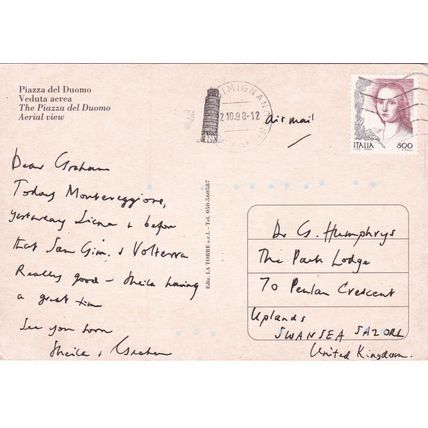 Piazza del Duomo
Veduta aerea
The Piazza del Duomo
Aerial view
IMIGNAN
2.10.98-12
air mail
ITALIA 800
Dear Graham
Today Montereggione,
yesterday Siena & before
that San Gim. & Volterra
Really good - Sheila having
a great time
See you soon
Sheila & Graham
Ediz. LA TORRE s.r.l. - Tel. 050-560587
Dr G. Humphrys
The Park Lodge
70 Penlan Crescent
Uplands
SWANSEA SA2 0RL
United Kingdom.